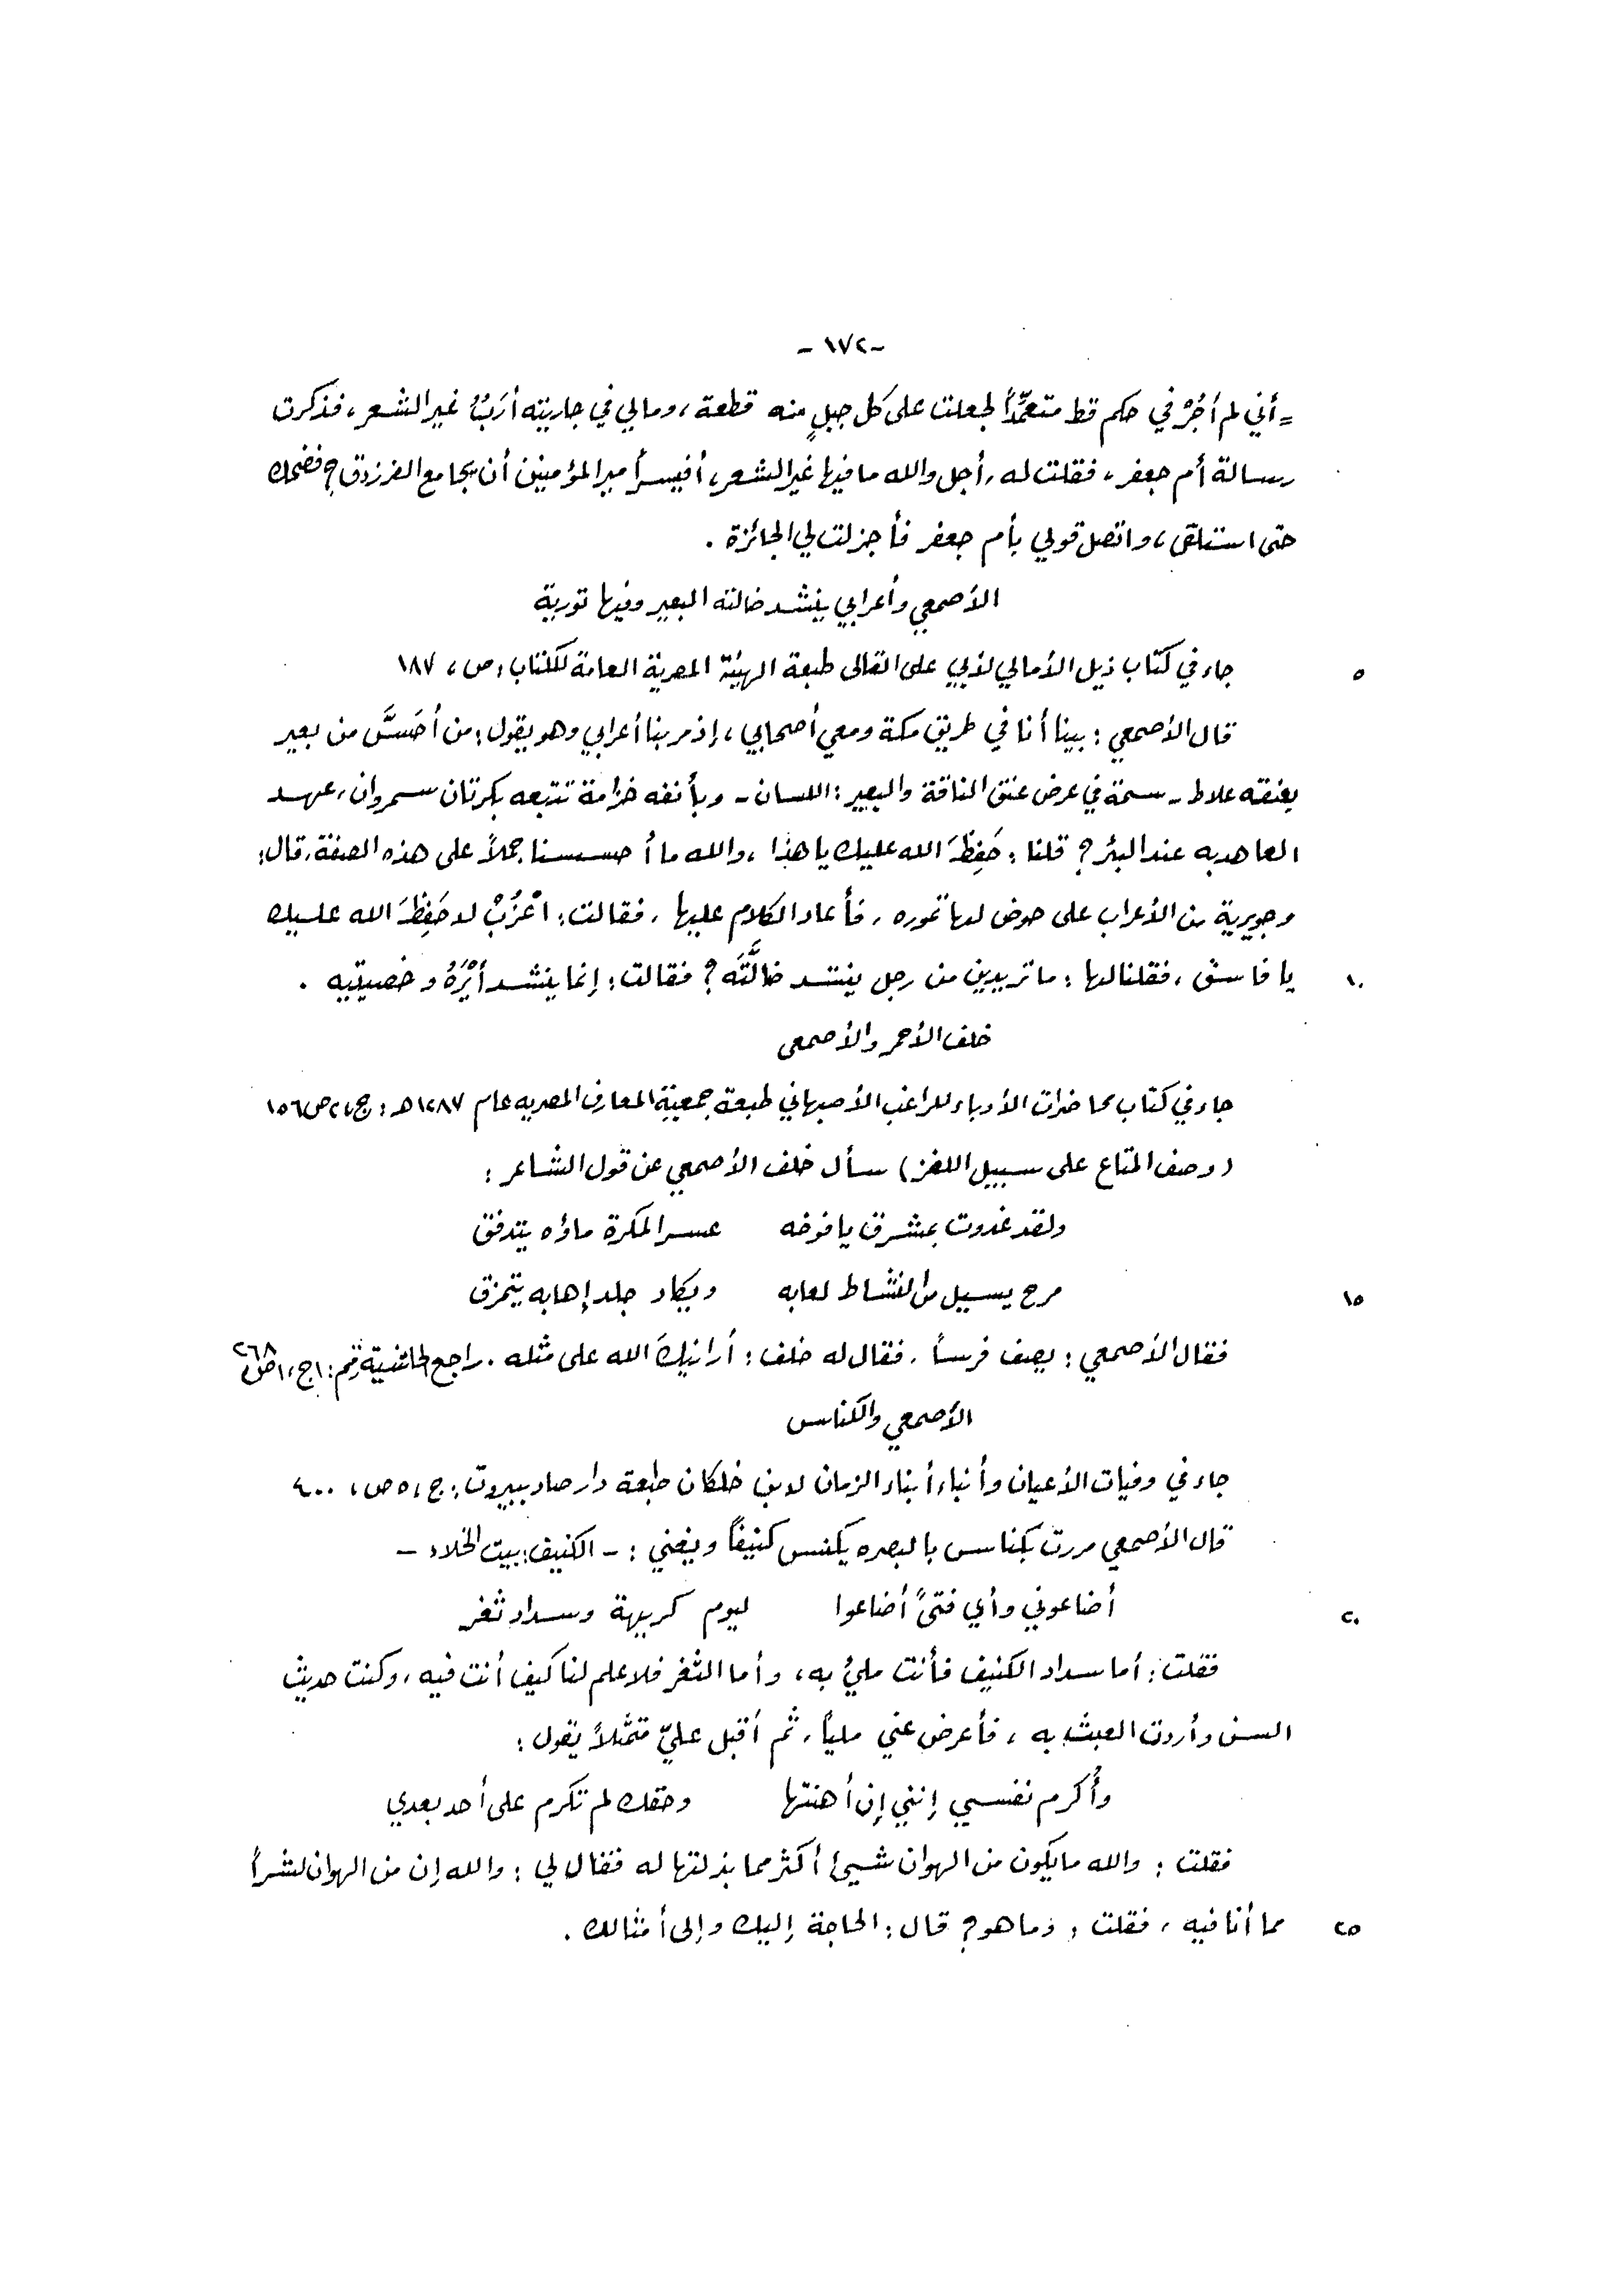 -١٧٢-
= أني لم أَجُرْ في حكم قط متعمِّداً لجعلت على كل جبلٍ منه قطعة، ومالي في جاريته أرَبٌ غير الشعر، فذكرت
رسالة أم جعفر، فقلت له، أجل والله ما فيها غير الشعر، أفيسرأمير المؤمنين أن يجامع الفرزدق؟ فضحك
حتى استلقى، واتصل قولي بأم جعفر فأجزلت لي الجائزة .
الأصمعي وأعرابي ينشد ضالته البعير وفيها تورية
٥ جاء في كتاب ذيل الأمالي لأبي على القالى طبعة الهيئة المصرية العامة للكتاب، ص، ١٨٧
قال الأصمعي: بينا أنا في طريق مكة ومعي أصحابي، إذ مر بنا أعرابي وهو يقول: من أحَسَّ من بعير
بعنقه علاط - سمة في عرض عنق الناقة والبعير: اللسان - وبأنفه خزامة تتبعه بكرتان سمروان، عهد
العاهد به عند البئر؟ قلنا: حَفِظَ الله عليك يا هذا، والله ما أحسسنا جملاً على هذه الصفة، قال:
وجويرية من الأعراب على حوض لها تموره، فأعاد الكلام عليها، فقالت: اعْزُبْ لا حَفِظَ الله عليك
١٠ يا فاسق، فقلنا لها: ما تريدين من رجل ينشد ضالَّتَه؟ فقالت: إنما ينشد أيْرَهُ وخصيتيه .
خلف الأحمر والأصمعى
جاء في كتاب محاضرات الأدباء للراغب الأصبهاني طبعة جمعية المعارف المصريه عام ١٢٨٧هـ: ج،٢ص١٥٦
(وصف المتاع على سبيل اللغز) سأل خلف الأصمعي عن قول الشاعر:
ولقد غدوت بمشرف يافوخه عسر المكرة ماؤه يتدفق
١٥ مرح يسيل من النشاط لعابه ويكاد جلد إهابه يتمزق
فقال الأصمعي: يصف فرساً، فقال له خلف: أرانيكَ الله على مثله . راجع الحاشية رقم:١ج،١ص،٢٦٨
الأصمعي والكناس
جاء في وفيات الأعيان وأنباء أبناء الزمان لابن خلكان طبعة دار صادر ببيروت: ج،٥ص، ٤٠٠
قال الأصمعي مررت بكناس بالبصره يكنس كنيفاً ويغني: - الكنيف: بيت الخلاء -
٢٠ أضاعوني وأي فتىً أضاعوا ليوم كريهة وسداد ثغر
فقلت: أما سداد الكنيف فأنت مليُ به، وأما الثغر فلا علم لنا كيف أنت فيه، وكنت حديث
السن وأردت العبث به، فأعرض عني ملياً، ثم أقبل عليّ متمثلاً يقول:
وأُكرم نفسي إنني إن أهنتها وحقك لم تكرم على أحد بعدي
فقلت: والله مايكون من الهوان شيئ أكثر مما بذلتها له فقال لي: والله إن من الهوان لشراً
٢٥ مما أنا فيه، فقلت: وما هو؟ قال: الحاجة إليك وإلى أمثالك .